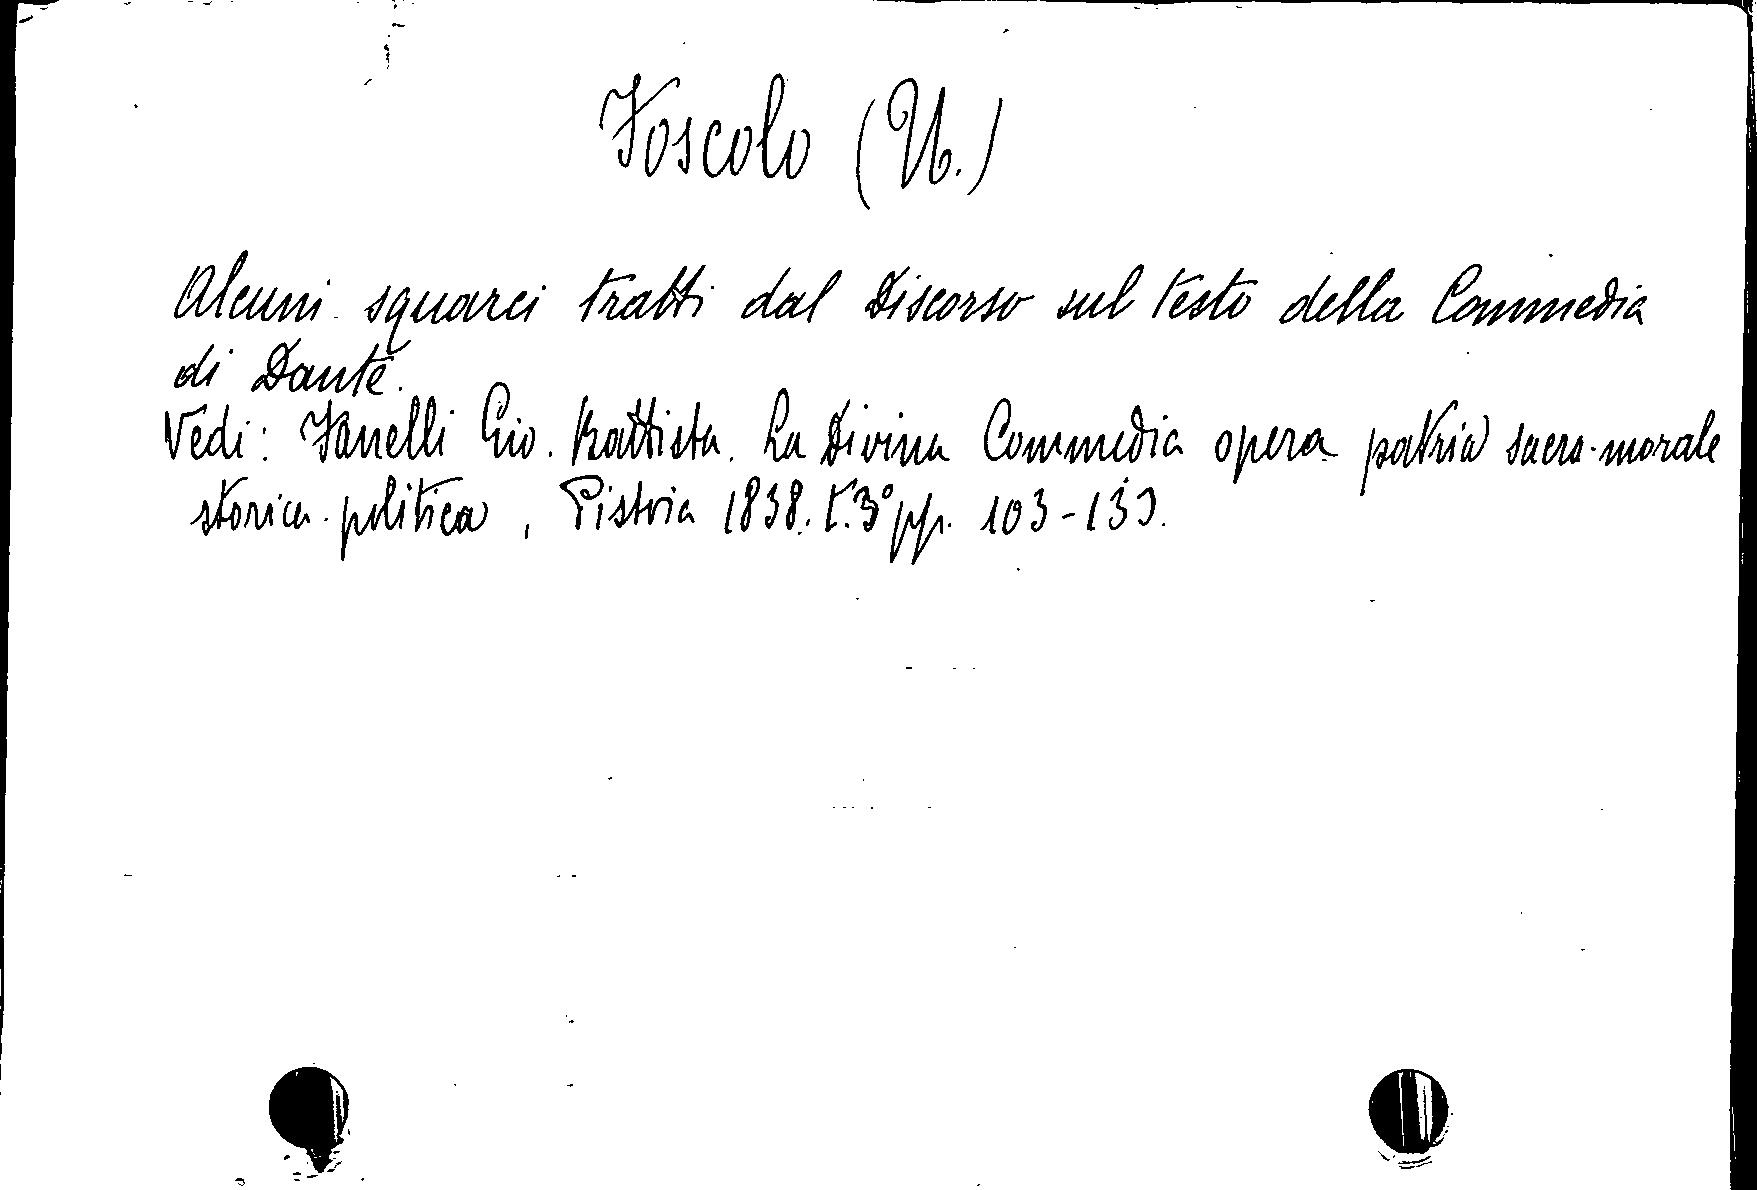 Foscolo (U.)
Alcuni squarci tratti dal Discorso sul testo della Commedia
di Dante.
Vedi: Fanelli Gio. Battista. La Divina Commedia opera patria sacra-morale
storica-politica, Pistoia 1838. t. 3° pp. 103-139.